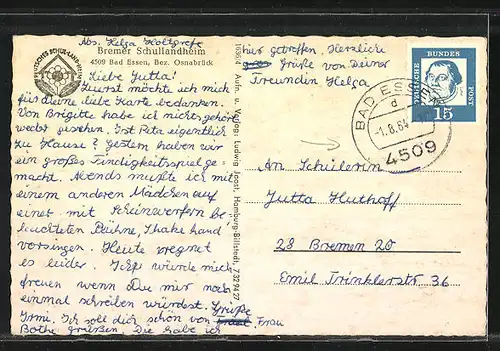 Abs. Helga Holtgrefe
Bremer Schullandheim
4509 Bad Essen, Bez. Osnabrück
Liebe Jutta!
Zuerst möchte ich mich
für Deine liebe Karte bedanken.
Von Brigitte habe ich nichts gehört
weder gesehen. Ist Peta eigentlich
zu Hause? Gestern haben wir
ein großes Fündigkeitsspiel ge-
macht. Abends mußte ich mit
einem anderen Mädchen auf
einer mit Scheinwerfern be-
leuchteten Bühne, Shake hand
vorsingen. Heute regnet
es leider. Ich würde mich
freuen wenn Du mir noch
einmal schreiben würdest. Grüße
Irmi. Ich soll dich schön von Frau
Bothe grüßen. Die habe ich
hier getroffen. Herzliche
Grüße von Deiner
Freundin Helga.
Aufn. u. Verlag: Ludwig Jeost, Hamburg-Billstedt, 7 32 94 57
DEUTSCHE BUNDESPOST
15
BAD ESSEN
d
-1.8.64
4509
An Schülerin
Jutta Huthoff
28 Bremen 20
Emil Trinklerstr. 36